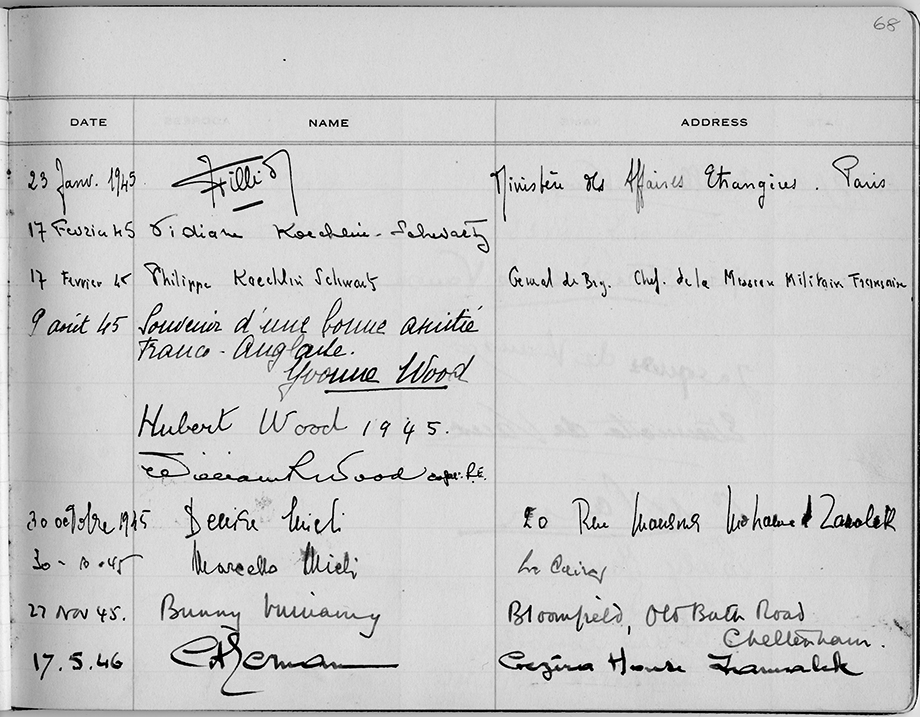 68
DATE NAME ADDRESS
23 Janv. 1945 Ministère des Affaires Etrangères. Paris
17 Fevrier 45 Koechlin-Schwartz
17 Fevrier 45 Philippe Koechlin Schwartz General de Brig. Chef. de la Mission Militaire Française
9 août 45 Souvenir d'une bonne amitié
Franco-Anglaise.
Yvonne Wood
Hubert Wood 1945.
William R Wood R.E.
30 octobre 1945 Denise Mieli 20 Rue Mansour Mohamed Zamalek
30-10-45 Marcello Mieli Le Caire
27 Nov 45. Bunny Bloomfield, Old Bath Road
Cheltenham.
17.5.46 Gezira House Zamalek